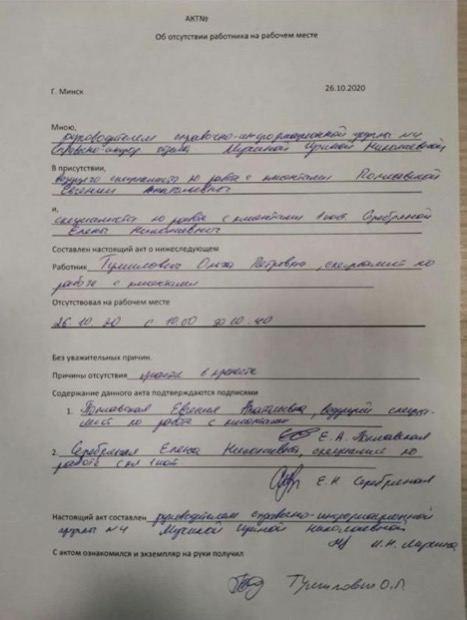 АКТ№
Об отсутствии работника на рабочем месте
Г. Минск
26.10.2020
Мною,
руководителем справочно-информационной группы №4
отдела Мухиной Ириной Николаевной
В присутствии,
ведущего специалиста по работе с клиентами
Евгении Анатольевны
и,
специалиста по работе с клиентами 1 кат. Серебряной
Елены Николаевны
Составлен настоящий акт о нижеследующем
Работник Тумилович Ольга Петровна, специалист по
работе с клиентами
Отсутствовал на рабочем месте
26.10.20 с 10.00 до 10.40
Без уважительных причин.
Причины отсутствия участие в
Содержание данного акта подтверждаются подписями
1. Евгения Анатольевна, ведущий специа-
лист по работе с клиентами
Е.А.
2. Серебряная Елена Николаевна, специалист по
работе с кл 1 кат
Е.Н Серебряная
Настоящий акт составлен руководителем справочно-информационной
группы №4 Мухиной Ириной Николаевной
И.Н. Мухина
С актом ознакомился и экземпляр на руки получил
Тумилович О.П.